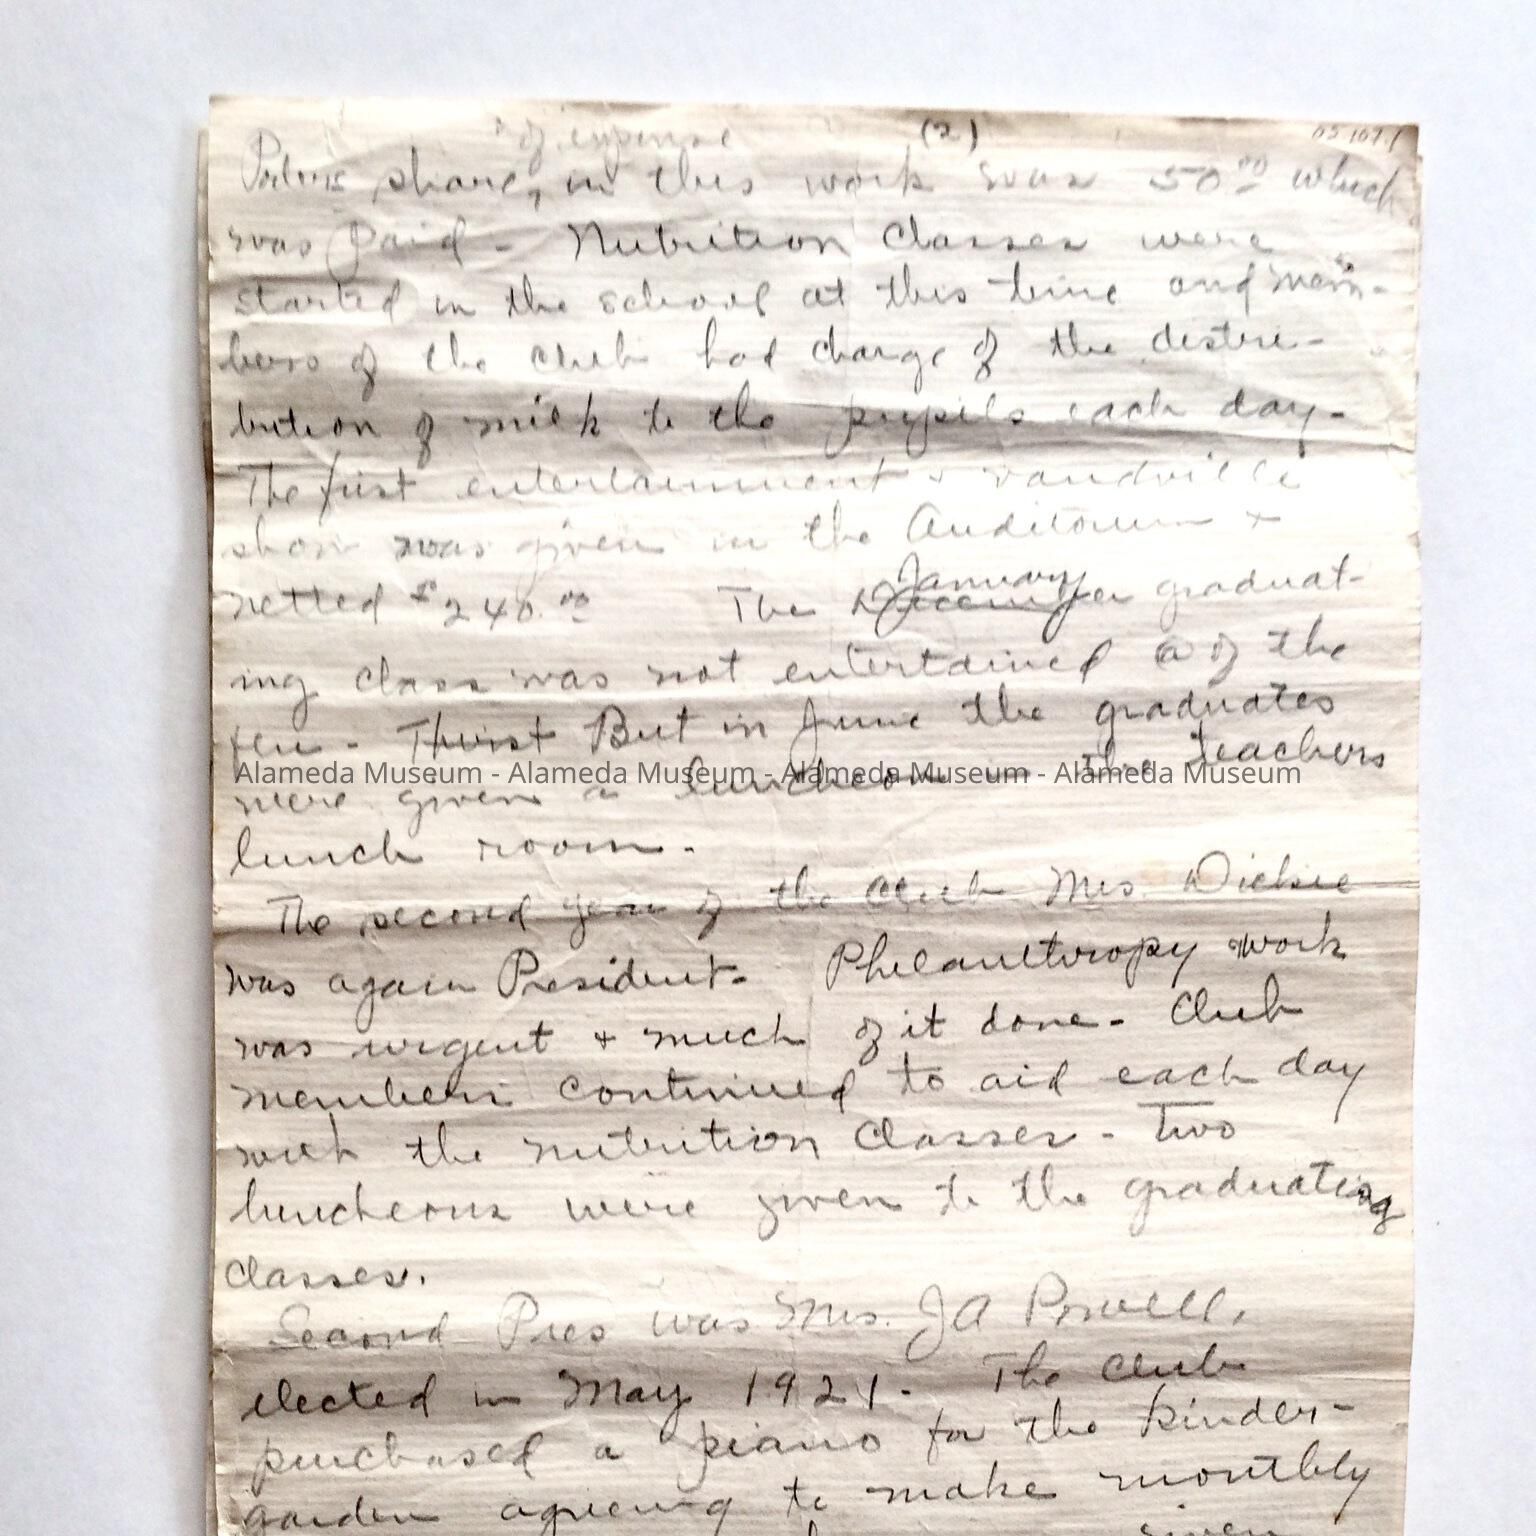 (2) 05 107.1
of expense
Porters share, in this work was 50.00 which
was paid - Nutrition Classes were
started in the school at this time and mem-
bers of the club had charge of the distri-
bution of milk to the pupils each day -
The first entertainment a vaudville
show was given in the Auditorium +
netted $240.00 The December January graduat-
ing class was not entertained of the
But in June the graduates
were given a luncheon in the teachers
Alameda Museum - Alameda Museum - Alameda Museum - Alameda Museum
lunch room -
The second year of the Club Mrs. Dickie
was again President - Philanthropy work
was urgent + much of it done - Club
members continued to aid each day
with the nutrition Classes - Two
luncheons were given to the graduating
Classes.
Second Pres was Mrs. J A Powell,
elected in May 1921 - The Club
purchased a piano for the kinder-
garden agreeing to make monthly
given